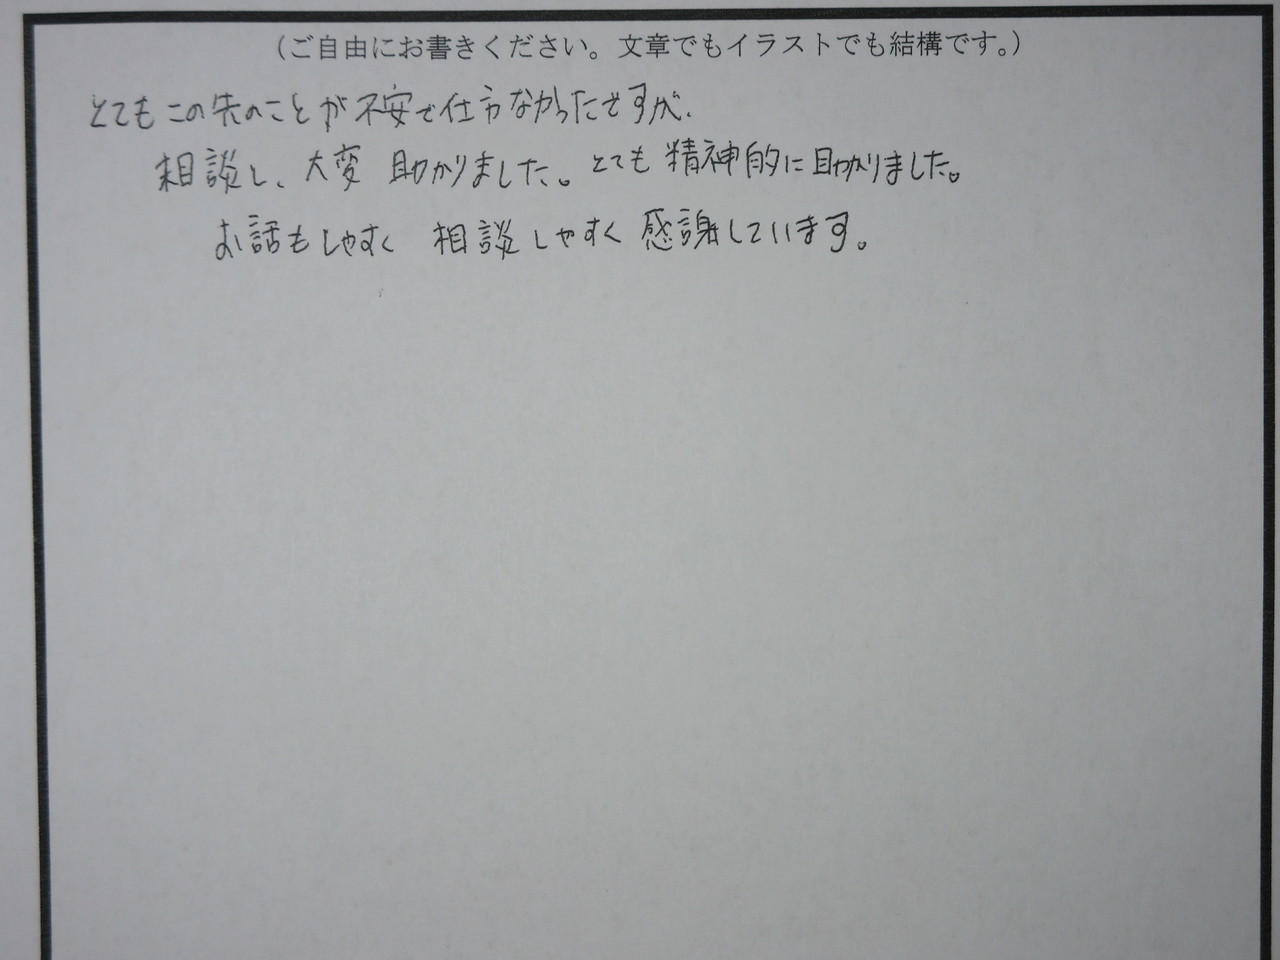 （ご自由にお書きください。文章でもイラストでも結構です。）
とてもこの先のことが不安で仕方なかったですが、
相談し、大変 助かりました。とても精神的に助かりました。
お話もしやすく 相談しやすく感謝しています。